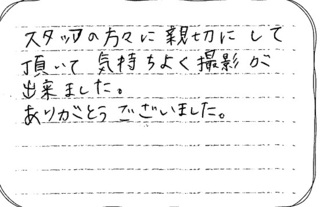 スタッフの方々に親切にして
頂いて気持ちよく撮影が
出来ました。
ありがとうございました。